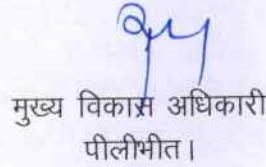 मुख्य विकास अधिकारी
पीलीभीत।